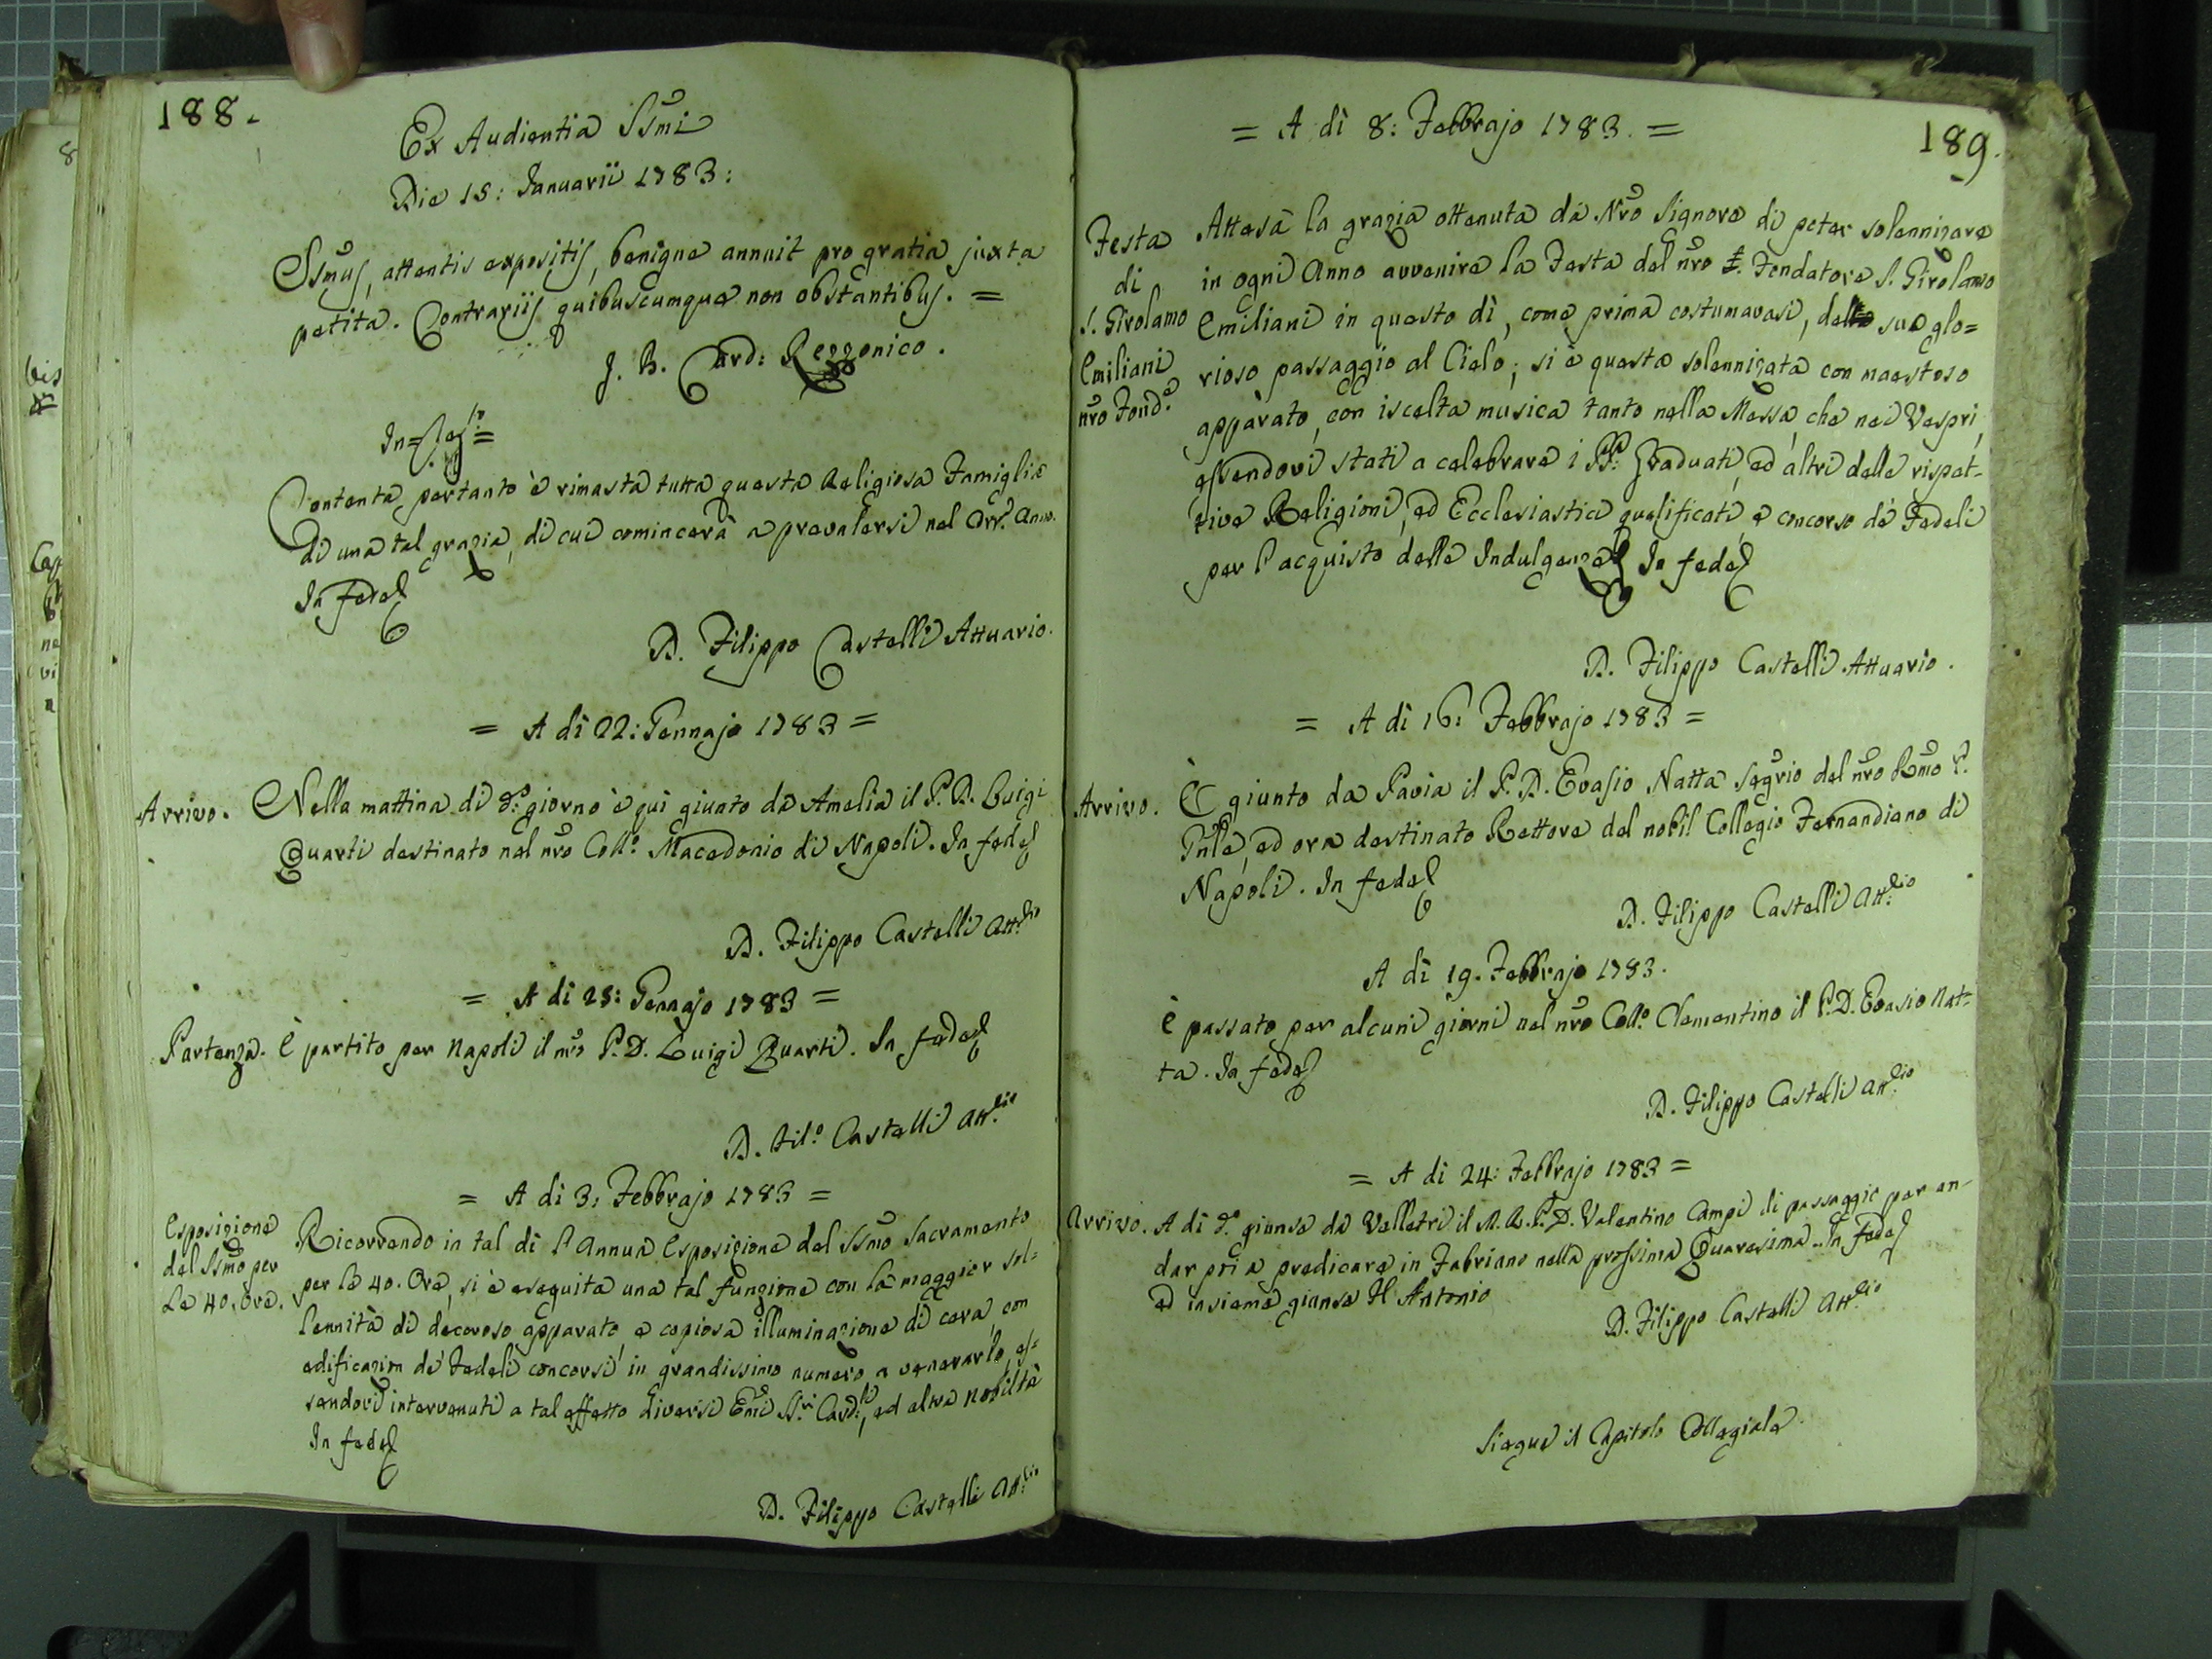 188.
Ex Audientia SSm̃i
Die 15: Januarii 1783:
SSm̃us, attentis expositis, benigne annuit pro gratia juxta
petita. Contrariis quibuscumque non obstantibus. =
J. B. Card: Rezzonico.
Contenta pertanto è rimasta tutta questa Religiosa Famiglia
di una tal grazia, di cui comincerà a prevalersi nel Anno.
In fede
D. Filippo Castelli Attuario.
= A di 22: Gennajo 1783 =
Arrivo. Nella mattina di do: giorno è quì giunto da Amelia il P. D. Luigi
Quarti destinato nel nrõ Collo. Macedonio di Napoli. In fede
D. Filippo Castelli Att.rio
= A di 25: Gennajo 1783 =
Partenza. È partito per Napoli il P. D. Luigi Quarti. In fede
D. Filo. Castelli Att.rio
= A di 3: Febbrajo 1783 =
Esposizione
del SSm̃o per
Le 40. Ore.
Ricorrendo in tal di l'Annua Esposizione del SSm̃o Sacramento
per le 40. Ore, si è eseguita una tal funzione con la maggior sol=
lennità di decoroso apparato, e copiosa illuminazione di cera, con
edificazion de' Fedeli concorsi in grandissimo numero a venerarlo, es=
sendovi intervenuti a tal effetto diversi Em̃i SS.ri Card:li, ed altra nobiltà
In fede
D. Filippo Castelli Att.rio
189.
= A dì 8: Febbrajo 1783. =
Festa
di
S. Girolamo
Emiliani
nrõ Fond.e
Attesa la grazia ottenuta da Nrõ Signore di poter solennizare
in ogni Anno avvenire la Festa del nrõ S. Fondatore S. Girolamo
Emiliani in questo dì, come prima costumavasi, del suo glo=
rioso passaggio al Cielo; si è questa solennizata con maestoso
apparato, con iscelta musica tanto nella Messa, che nei Vespri,
essendovi stati a celebrare i PP: Graduati, ed altri delle rispet=
tive Religioni, ed Ecclesiastici qualificati, e concorso de' Fedeli
per l'acquisto delle Indulgenze In fede
D. Filippo Castelli Attuario.
= A di 16: Febbrajo 1783 =
Arrivo. È giunto da Pavia il P. D. Evasio Natta Segrio del nrõ Rm̃o P.
Gñle, ed ora destinato Rettore del nobil Collegio Fernandiano di
Napoli. In fede
D. Filippo Castelli Att:rio
A di 19. Febbrajo 1783.
È passato per alcuni giorni nel nrõ Collo. Clementino il P. D. Evasio Nat=
ta. In fede
D. Filippo Castelli Att:rio
= A di 24: Febbrajo 1783 =
Arrivo. A di do. giunse da Velletri il M. R. P. D. Valentino Campi di passaggio per an=
dar poi a predicare in Fabriano nella prossima Quaresima. In fede
ed insieme giunse Antonio
D. Filippo Castelli Att:rio
Siegue il Capitolo Collegiale.